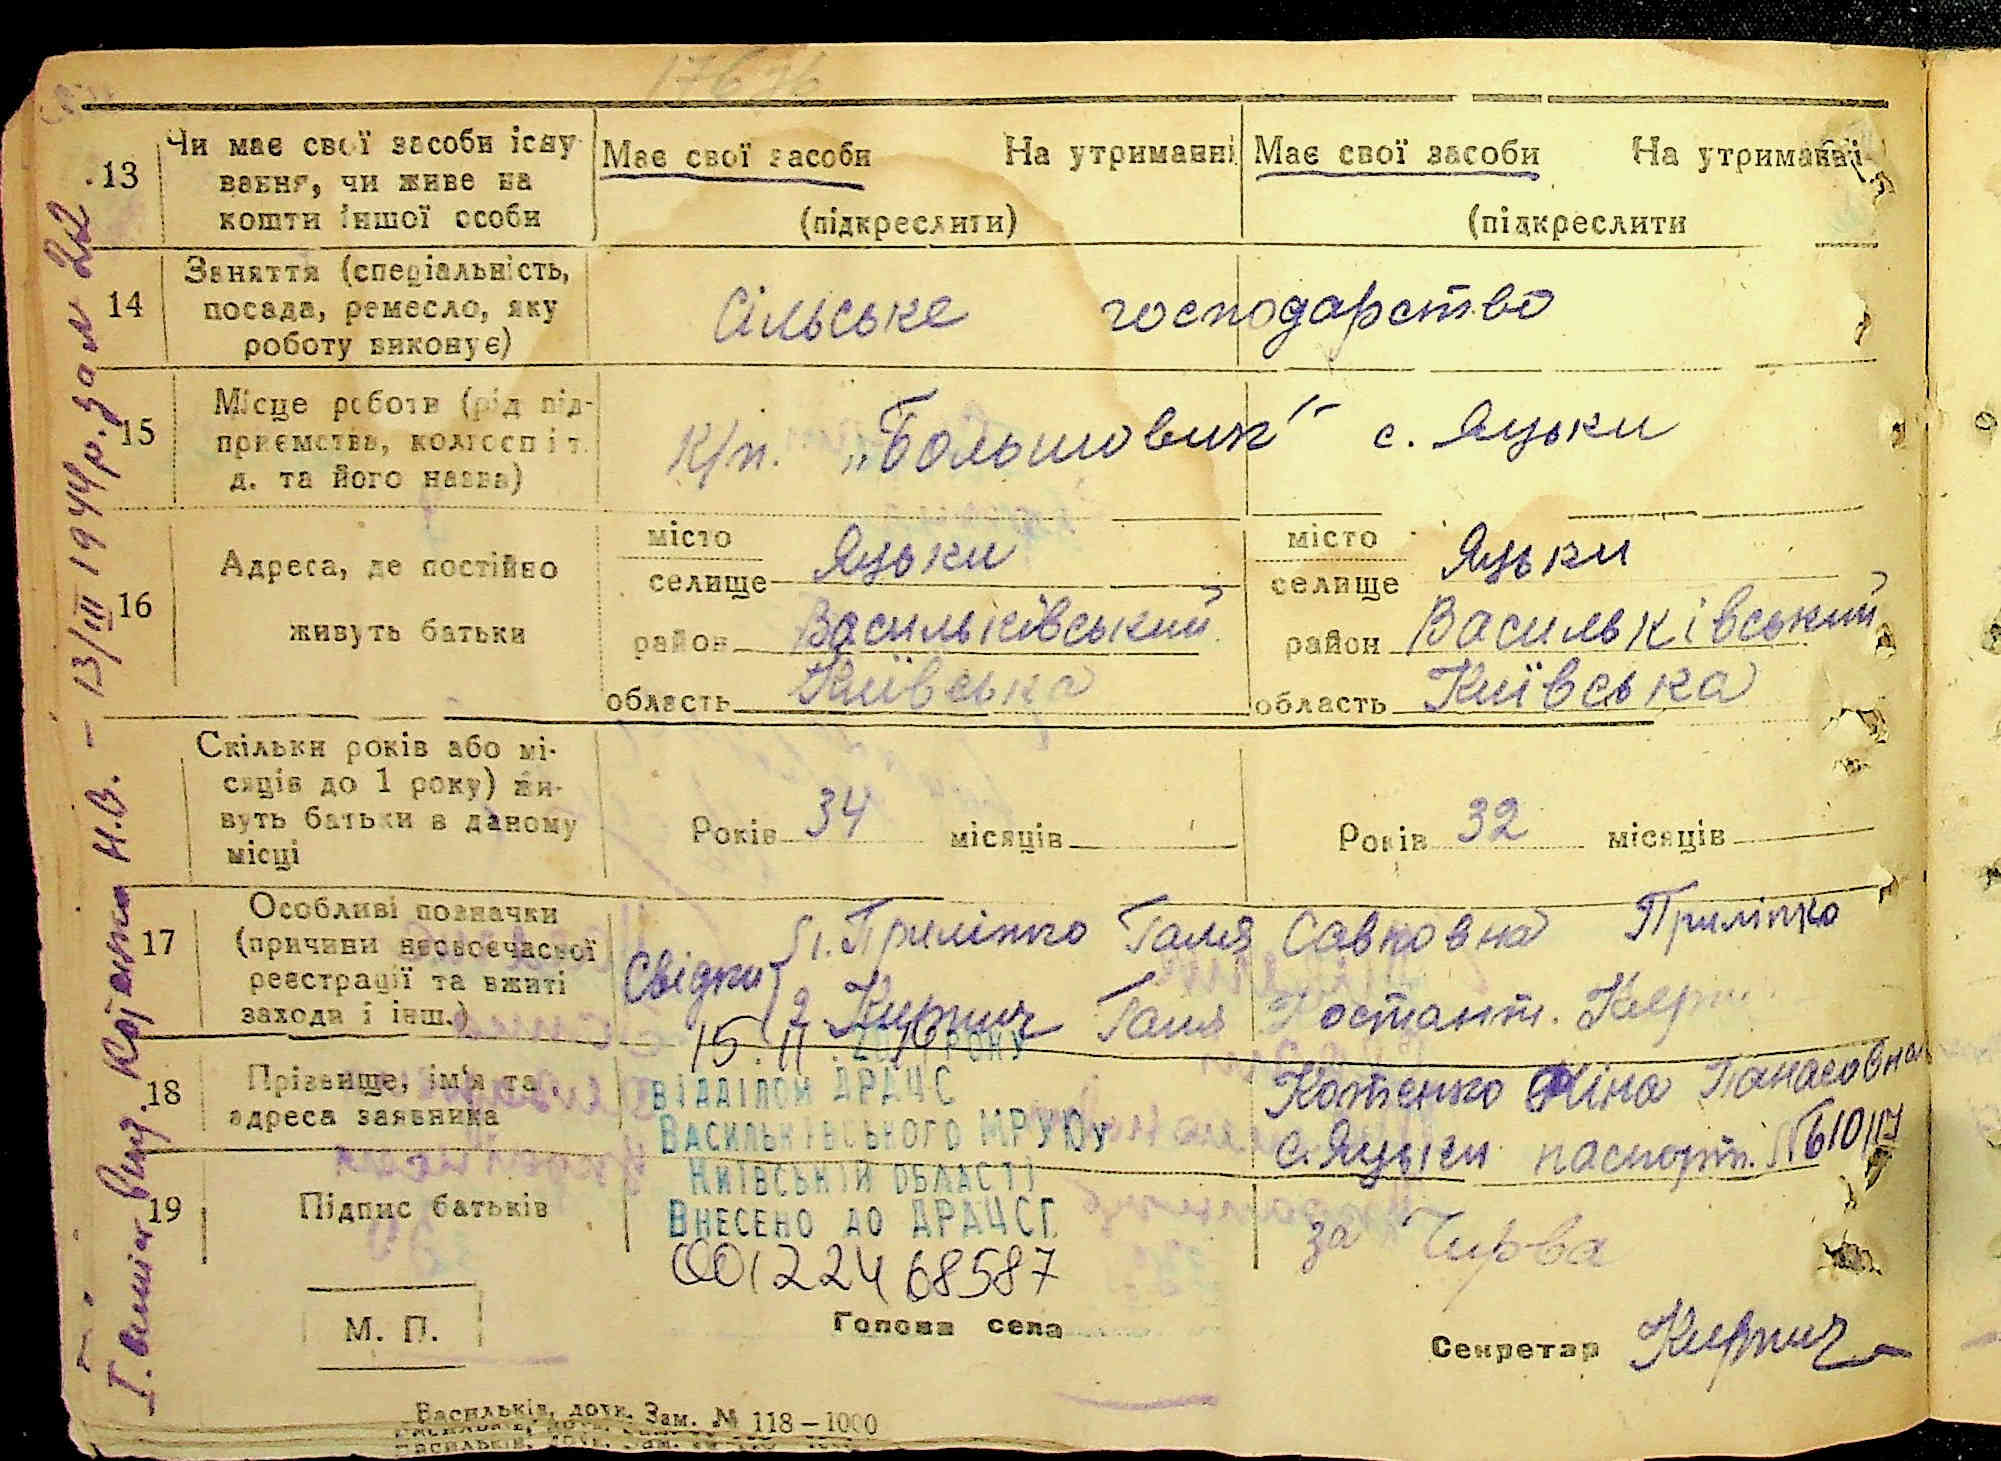 13
Чи має свої засоби існу
вання, чи живе на
кошти іншої особи
Має свої засоби На утриманні
(підкреслити)
Має свої засоби На утриманні
(підкреслити
14
Заняття (спеціальність,
посада, ремесло, яку
роботу виконує)
Сільське господарство
15
Місце роботи (рід під-
приємства, колгосп і т.
д. та його назва)
К/п. „Большовик" с. Яцьки
16
Адреса, де постійно
живуть батьки
місто
селище Яцьки
район Васильківський
область Київська
місто
селище Яцьки
район Васильківський
область Київська
Скільки років або мі-
сяців до 1 року) жи-
вуть батьки в даному
місці
Років 34 місяців
Років 32 місяців
17
Особливі позначки
(причини несвоєчасної
реєстрації та вжиті
заходи і інш.)
Свідки
1. Приліпко Галя Савковна Приліпко
2. Кирпич Галя Костант.
18
Прізвище, ім'я та
адреса заявника
Котенко Ніна Панасовна
с. Яцьки паспорт.
15 11
ВІДДІЛОМ ДРАЦС
ВАСИЛЬКІВСЬКОГО МРУЮ
КИЇВСЬКІЙ ОБЛАСТІ
ВНЕСЕНО ДО ДРАЦСГ
00122468587
19
Підпис батьків
за Чирва
М. П.
Голова села
Секретар Кирпич
Васильків, друк. Зам. № 118—1000
13/III 1944р. за № 22